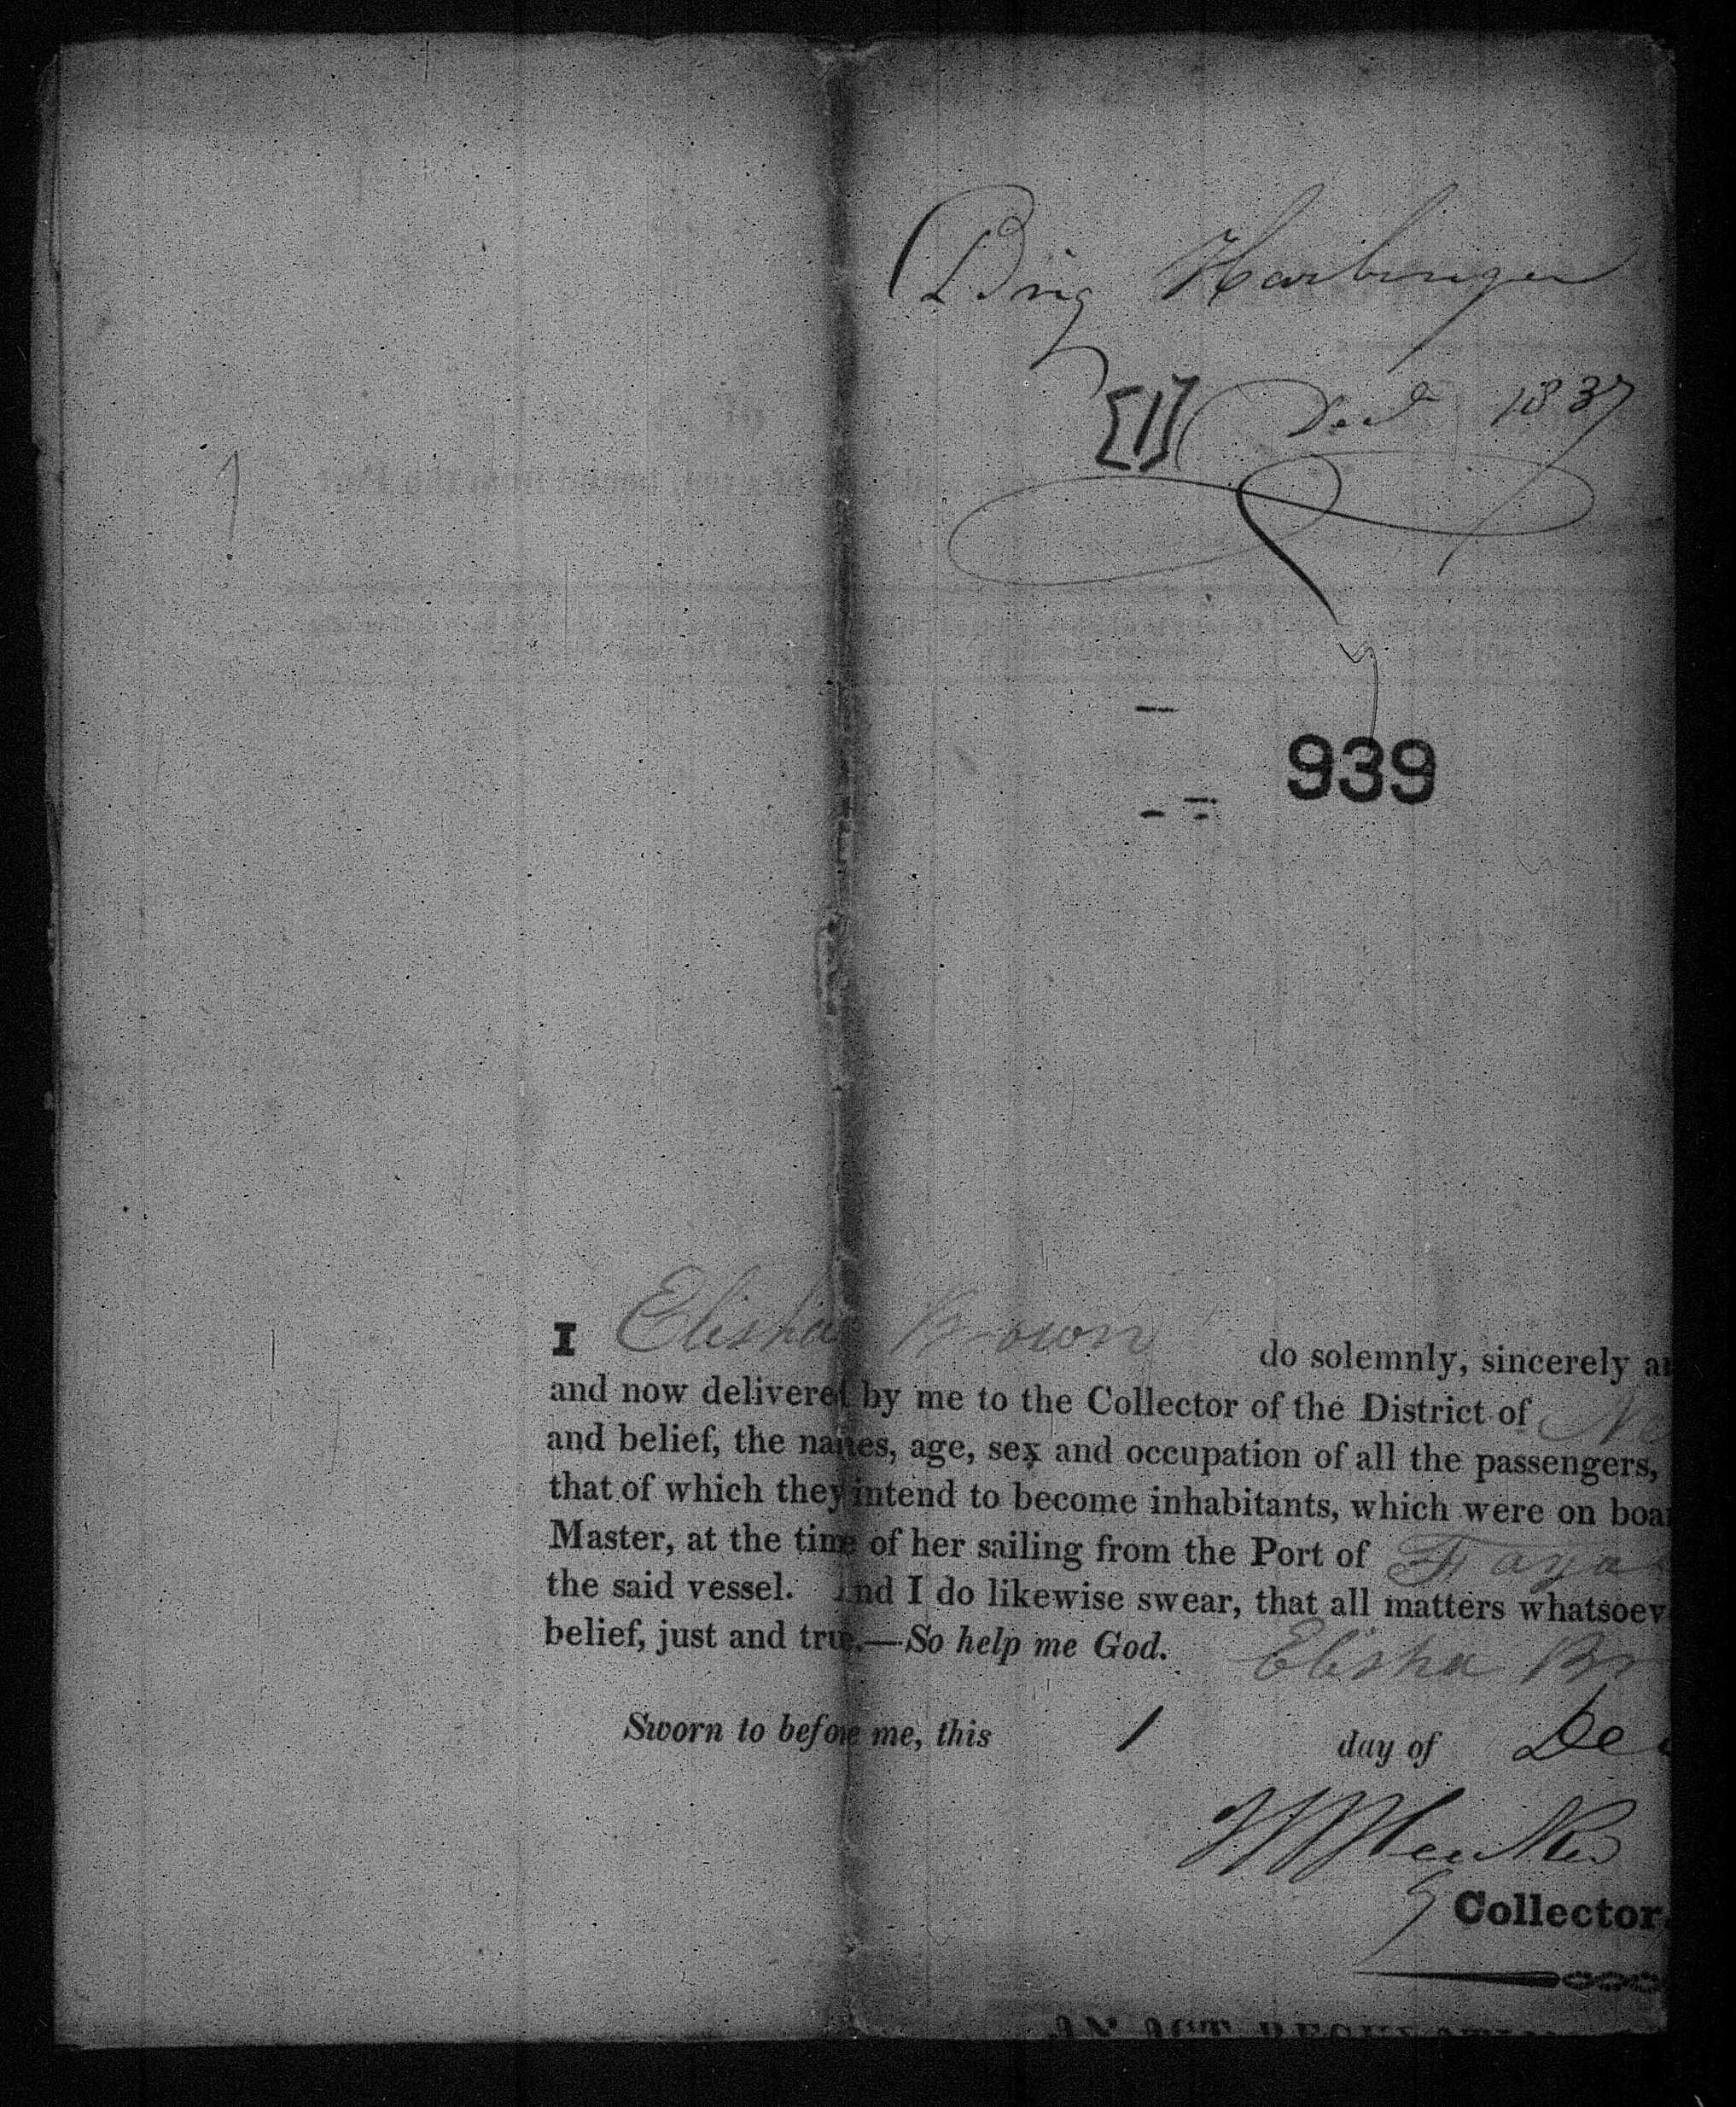 Brig Harbinger
[1] Decr 1837
939
I Elisha Brown do solemnly, sincerely a
and now delivered by me to the Collector of the District of Ne
and belief, the names, age, sex and occupation of all the passengers,
that of which they intend to become inhabitants, which were on boa
Master, at the time of her sailing from the Port of Fayal
the said vessel. And I do likewise swear, that all matters whatsoev
belief, just and true.—So help me God. Elisha Br
Sworn to before me, this 1 day of Dec
Collector
AN ACT REGULATING